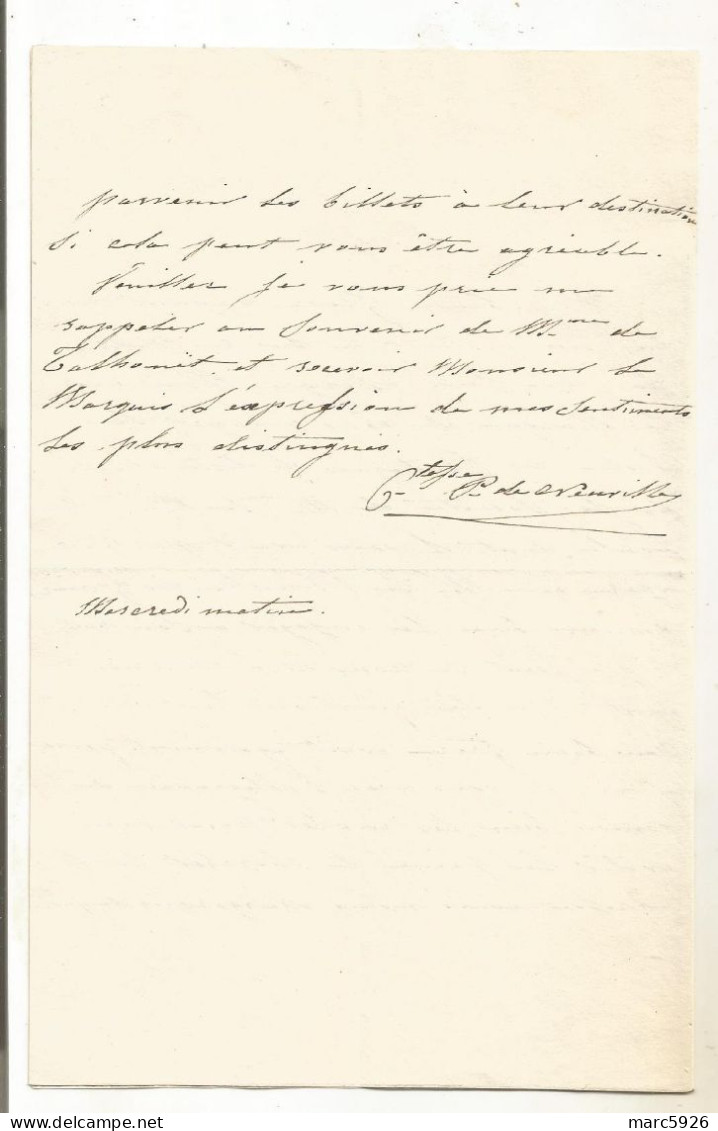 parvenir les billets à leur destination
si cela peut vous être agréable.
Veuillez je vous prie me
rappeler au souvenir de Mme de
Talhouët et recevoir Monsieur le
Marquis l'expression de mes sentiments
les plus distingués.
Ctesse P. de Neuville
Mercredi matin.
marc5926